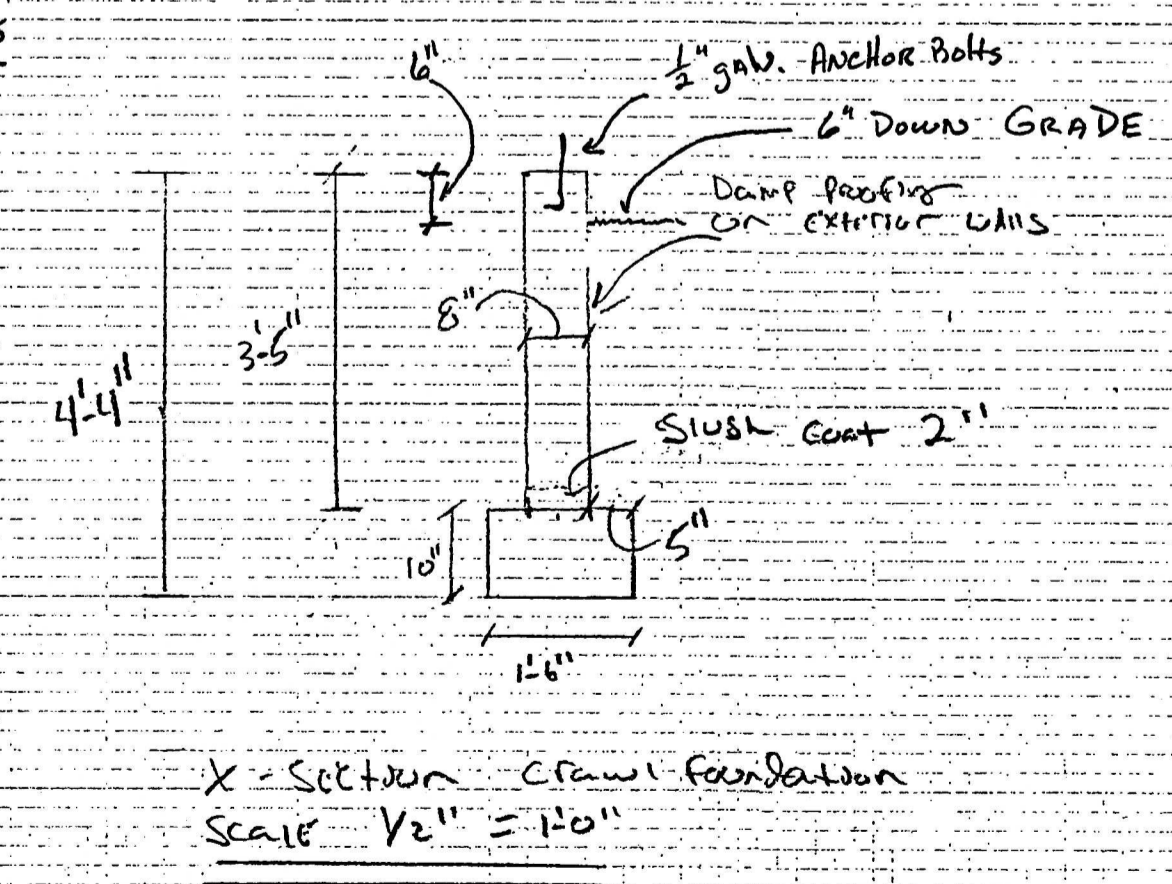 6"
1/2" galv. Anchor Bolts
6" Down GRADE
Damp Proofing
on exterior walls
8"
3'-5"
4'-4"
Slush Coat 2"
5"
10"
1'-6"
X-Section Crawl Foundation
Scale 1/2" = 1'-0"